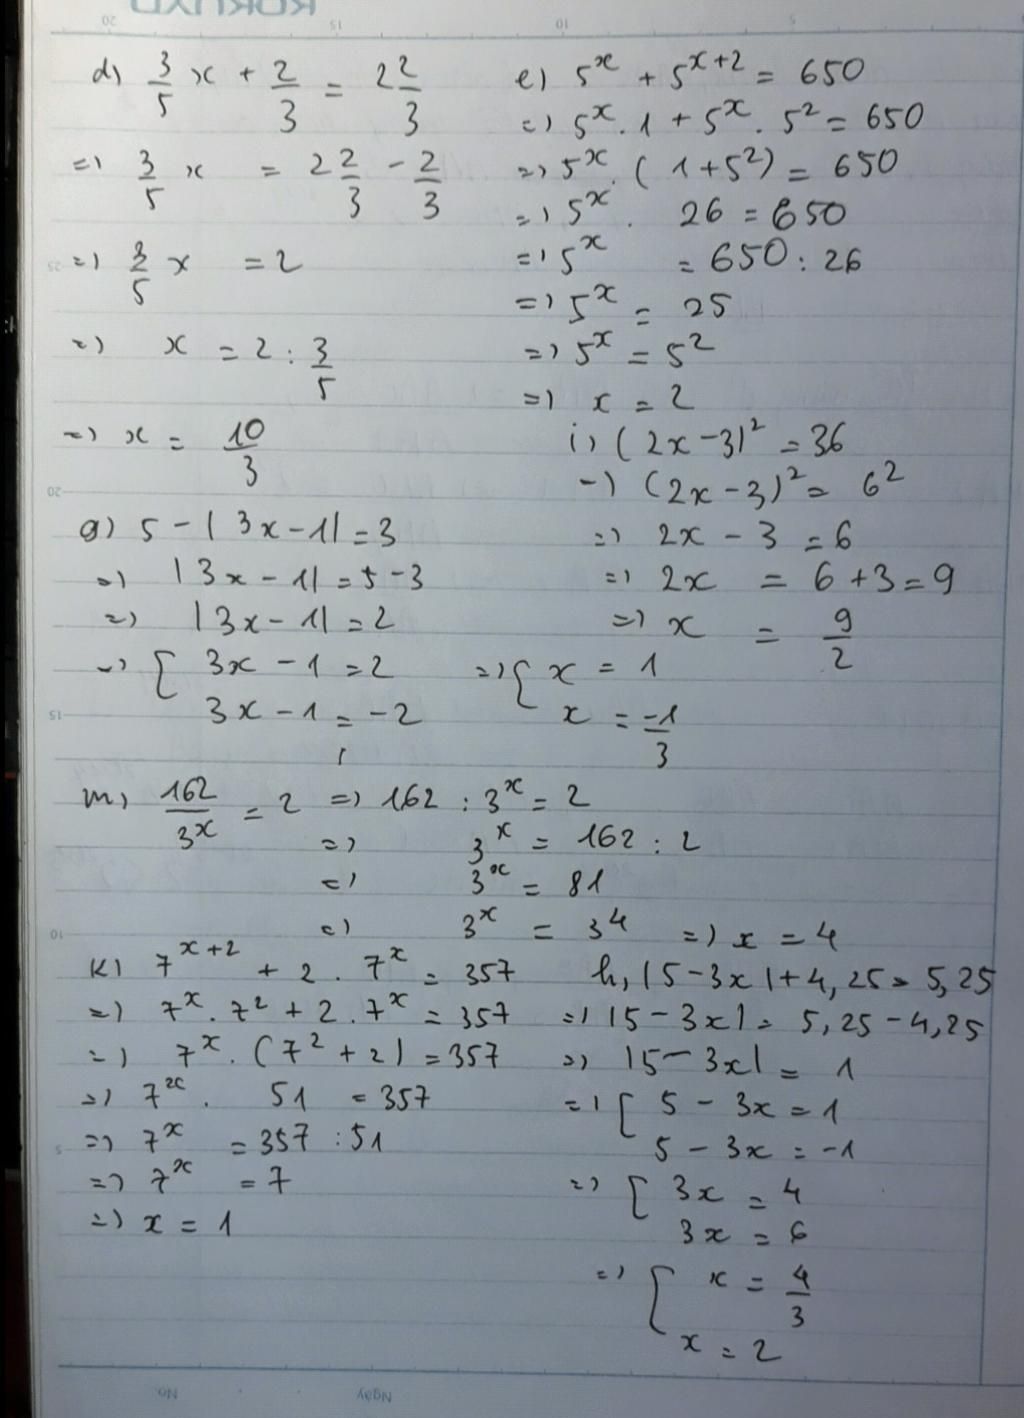 d) 3/5 x + 2/3 = 2 2/3
=) 3/5 x = 2 2/3 - 2/3
=) 3/5 x = 2
=) x = 2 : 3/5
=) x = 10/3
e) 5^x + 5^(x+2) = 650
=) 5^x . 1 + 5^x . 5^2 = 650
=) 5^x . (1 + 5^2) = 650
=) 5^x . 26 = 650
=) 5^x = 650 : 26
=) 5^x = 25
=) 5^x = 5^2
=) x = 2
i) (2x - 3)^2 = 36
-) (2x - 3)^2 = 6^2
=) 2x - 3 = 6
=) 2x = 6 + 3 = 9
=) x = 9/2
g) 5 - |3x - 1| = 3
=) |3x - 1| = 5 - 3
=) |3x - 1| = 2
=) [ 3x - 1 = 2 =) { x = 1
3x - 1 = -2 x = -1/3
m) 162/3^x = 2 =) 162 : 3^x = 2
=) 3^x = 162 : 2
=) 3^x = 81
=) 3^x = 3^4 =) x = 4
k) 7^(x+2) + 2 . 7^x = 357
=) 7^x . 7^2 + 2 . 7^x = 357
=) 7^x . (7^2 + 2) = 357
=) 7^x . 51 = 357
=) 7^x = 357 : 51
=) 7^x = 7
=) x = 1
h, |5 - 3x| + 4,25 = 5,25
=) |5 - 3x| = 5,25 - 4,25
=) |5 - 3x| = 1
=) [ 5 - 3x = 1
5 - 3x = -1
=) [ 3x = 4
3x = 6
=) [ x = 4/3
x = 2
No
Ngày